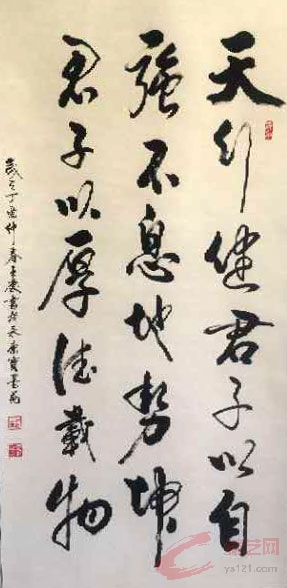 天行健君子以自
強不息地勢坤
君子以厚德載物
丁酉仲春
艺网
ys121.com